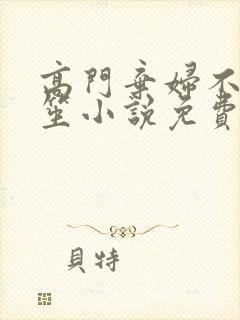 高門棄婦不
笙小說免費
貝特